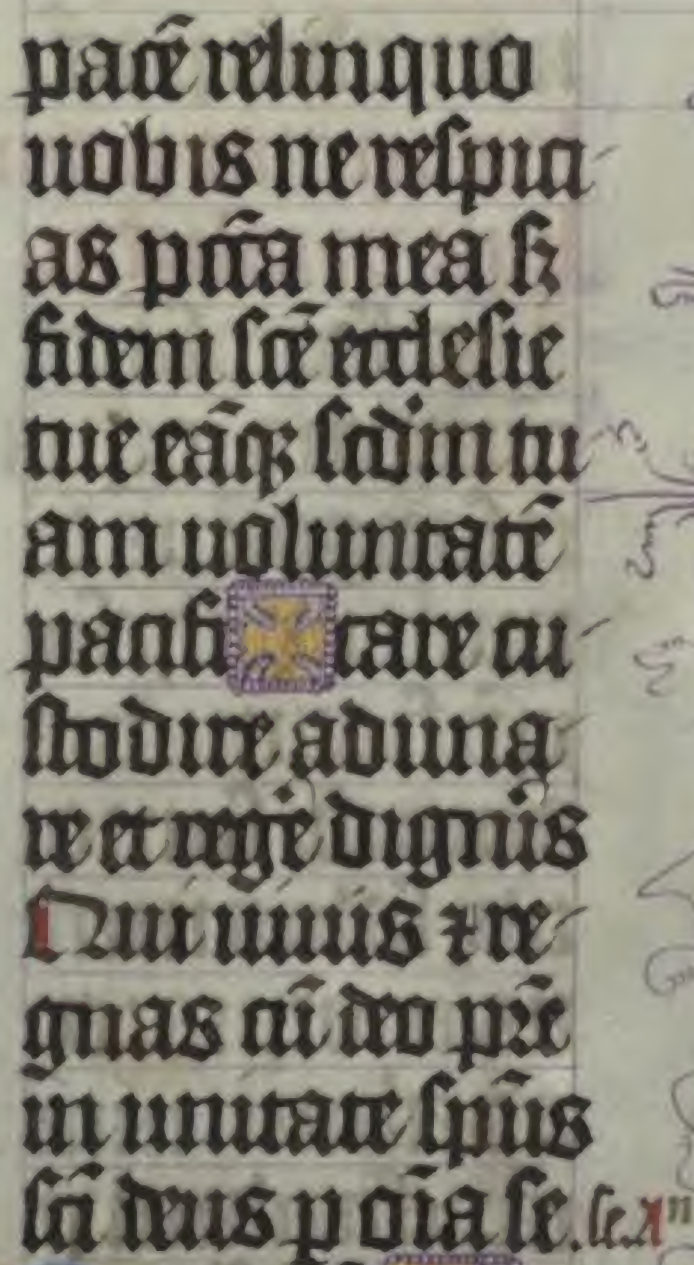 pacē relinquo
uobis ne respici
as pccā mea sꝫ
fidem scē ecclesie
tue eāqꝫ scdm tu
am uoluntatē
pacifi care cu
stodire aduna
re et regē digneris
Qui uiuis ⁊ re
gnas cū deo pr̄e
in unitate spūs
scī deus p oīa se. se. A n